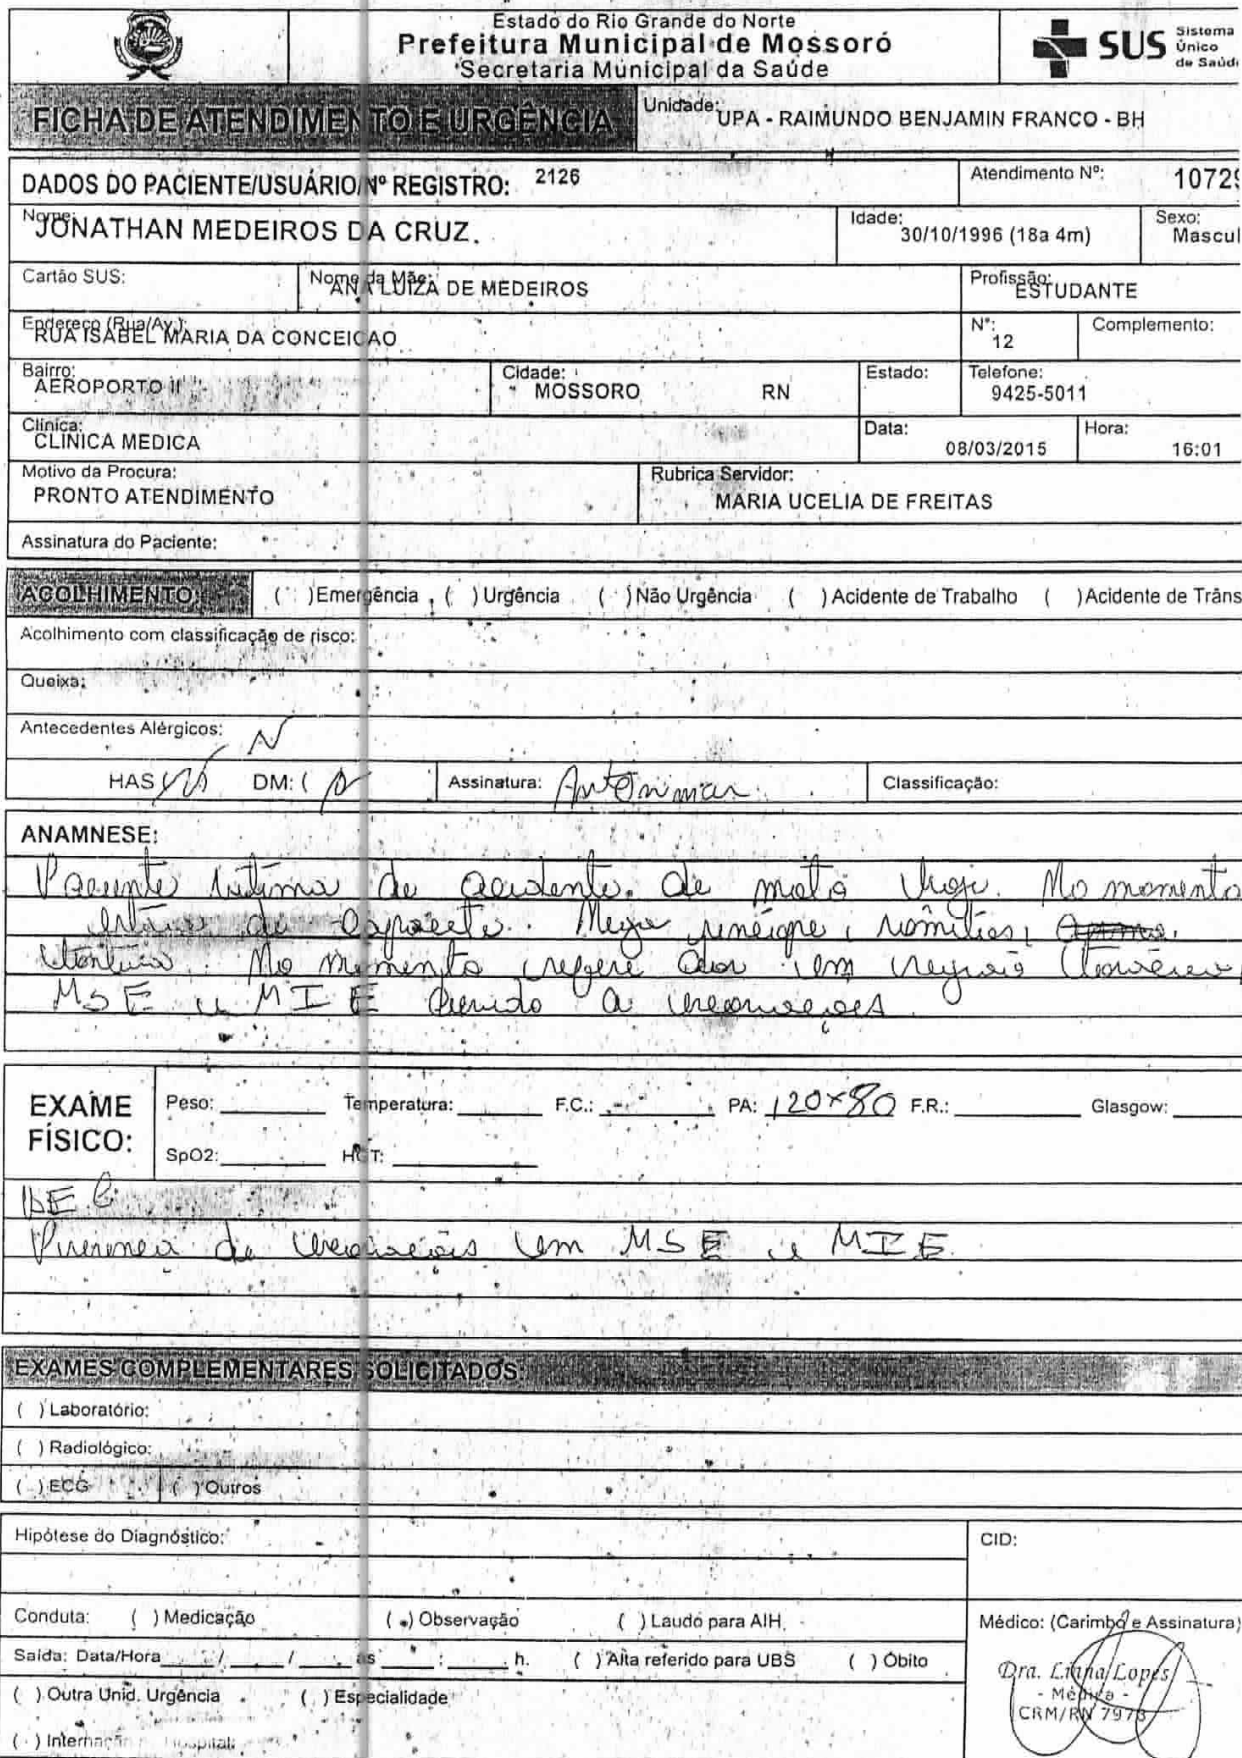 Estado do Rio Grande do Norte
Prefeitura Municipal de Mossoró
Secretaria Municipal da Saúde
SUS Sistema
Único
de Saúd
FICHA DE ATENDIMENTO E URGÊNCIA
Unidade: UPA - RAIMUNDO BENJAMIN FRANCO - BH
DADOS DO PACIENTE/USUÁRIO/Nº REGISTRO: 2126
Atendimento Nº: 1072
Nome: JONATHAN MEDEIROS DA CRUZ
Idade: 30/10/1996 (18a 4m)
Sexo: Mascul
Cartão SUS:
Nome da Mãe: ANA LUIZA DE MEDEIROS
Profissão: ESTUDANTE
Endereço (Rua/Av.): RUA ISABEL MARIA DA CONCEICAO
Nº: 12
Complemento:
Bairro: AEROPORTO II
Cidade: MOSSORO RN
Estado:
Telefone: 9425-5011
Clínica: CLINICA MEDICA
Data: 08/03/2015
Hora: 16:01
Motivo da Procura: PRONTO ATENDIMENTO
Rubrica Servidor: MARIA UCELIA DE FREITAS
Assinatura do Paciente:
ACOLHIMENTO: ( ) Emergência ( ) Urgência ( ) Não Urgência ( ) Acidente de Trabalho ( ) Acidente de Trâns
Acolhimento com classificação de risco:
Queixa:
Antecedentes Alérgicos: N
HAS DM: (
Assinatura:
Classificação:
ANAMNESE:
Paciente vítima de acidente de moto hoje. No momento
estava de capacete. Nega síncope, vômitos,
tontura. No momento refere dor em região torácica,
MSE e MIE devido a escoriações
EXAME FÍSICO:
Peso: Temperatura: F.C.: PA: 120x80 F.R.: Glasgow:
SpO2: HGT:
Presença de escoriações em MSE e MIE.
EXAMES COMPLEMENTARES SOLICITADOS:
( ) Laboratório:
( ) Radiológico:
( ) ECG ( ) Outros
Hipótese do Diagnóstico:
CID:
Conduta: ( ) Medicação ( ) Observação ( ) Laudo para AIH
Médico: (Carimbo e Assinatura)
Saída: Data/Hora / / às : h. ( ) Alta referido para UBS ( ) Óbito
( ) Outra Unid. Urgência ( ) Especialidade
( ) Internação Hospital:
Dra. Liana Lopes
- Médica -
CRM/RN 7973